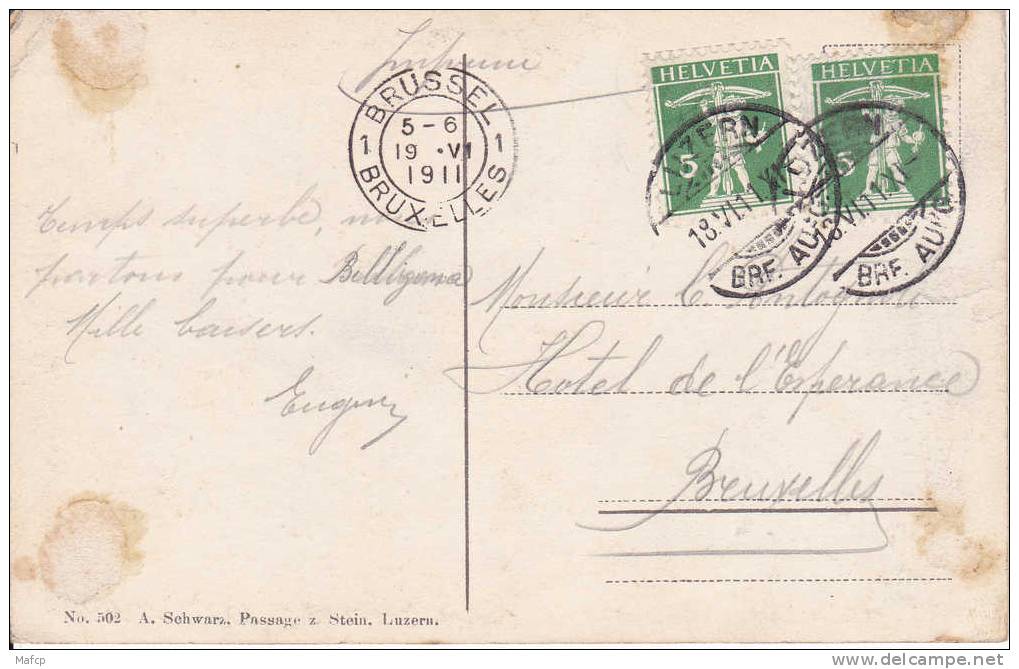 Imprimé
BRUSSEL
1 1
5-6
19 • VI
1911
BRUXELLES
HELVETIA
5
HELVETIA
5
LUZERN
18.VI.11.XI
BRF. AUFG.
LUZERN
18.VI.11.XI
BRF. AUFG.
Temps superbe, ns
partons pour Bellizona
Mille baisers.
Eugen
Monsieur C.
Hotel de l'Esperance
Bruxelles
No. 502 A. Schwarz. Passage z. Stein. Luzern.
Mafcp
delcampe.net